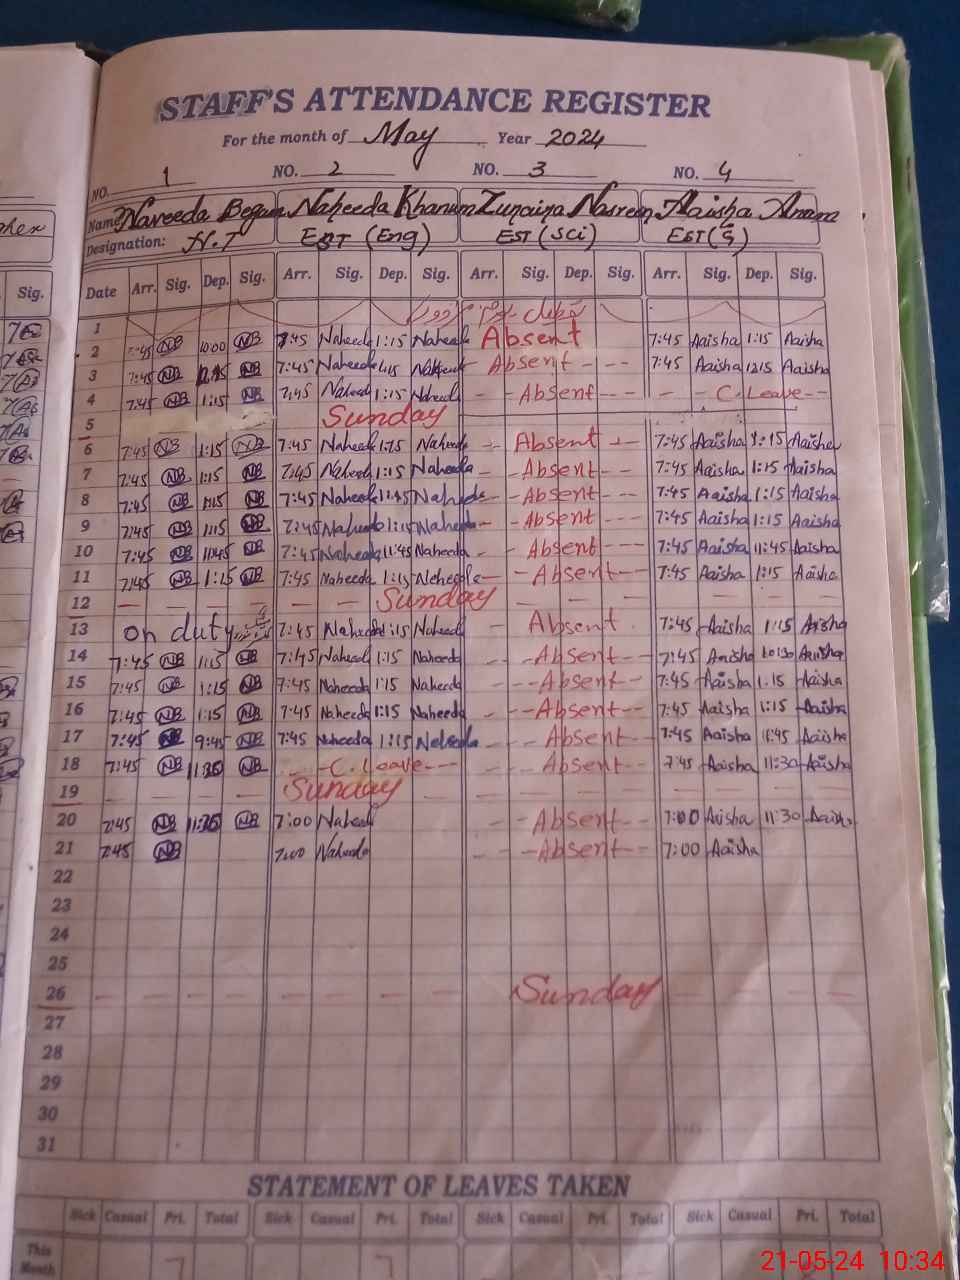 STAFF'S ATTENDANCE REGISTER
For the month of May Year 2024
NO. 1 NO. 2 NO. 3 NO. 4
Name Naveeda Begum Naheeda Khanum Zunaina Nasreen Aaisha Amam
Designation: H.T EST (Eng) EST (Sci) EST(
Date Arr. Sig. Dep. Sig. Arr. Sig. Dep. Sig. Arr. Sig. Dep. Sig. Arr. Sig. Dep. Sig.
1
2 7:45 NB 10:00 NB 7:45 Naheeda 1:15 Naheeda Absent 7:45 Aaisha 1:15 Aaisha
3 7:45 NB NB 7:45 Naheeda Absent - -- 7:45 Aaisha 1215 Aaisha
4 7:45 NB 1:15 NB 7:45 Naheeda 1:15 Naheeda - Absent - -- - - C. Leave --
5 Sunday
6 7:45 NB 1:15 NB 7:45 Naheeda Naheeda -- Absent -- 7:45 Aaisha 1:15 Aaisha
7 7:45 NB 1:15 NB 7:45 Naheeda 1:15 Naheeda - -Absent- -- 7:45 Aaisha 1:15 Aaisha
8 7:45 NB NB 7:45 Naheeda Naheeda -- -Absent- -- 7:45 Aaisha 1:15 Aaisha
9 7:45 NB 1:15 NB 7:45 Naheeda 1:15 Naheeda - -Absent --- 7:45 Aaisha 1:15 Aaisha
10 7:45 NB 11:45 NB 7:45 Naheeda 11:45 Naheeda - - Absent --- 7:45 Aaisha 11:45 Aaisha
11 7:45 NB 1:15 NB 7:45 Naheeda 1:15 Naheeda - -Absent --- 7:45 Aaisha 1:15 Aaisha
12 Sunday
13 on duty 7:45 Naheeda 1:15 Naheeda Absent 7:45 Aaisha 1:15 Aaisha
14 7:45 NB 1:15 NB 7:45 Naheeda 1:15 Naheeda -- -Absent-- 7:45 Aaisha 10:30 Aaisha
15 7:45 NB 1:15 NB 7:45 Naheeda 1:15 Naheeda - --Absent-- 7:45 Aaisha 1.15 Aaisha
16 7:45 NB 1:15 NB 7:45 Naheeda 1:15 Naheeda - --Absent-- 7:45 Aaisha 1:15 Aaisha
17 7:45 NB 9:45 NB 7:45 Naheeda 1:15 Naheeda -- -Absent-- 7:45 Aaisha 11:45 Aaisha
18 7:45 NB NB -C. Leave--- -- Absent-- 7:45 Aaisha 11:30 Aaisha
19 Sunday
20 7:45 NB NB 7:00 Naheed -- -Absent-- 7:00 Aaisha 11:30 Aaisha
21 7:45 NB 7:00 Naheeda -- -Absent-- 7:00 Aaisha
22
23
24
25
26 Sunday
27
28
29
30
31
STATEMENT OF LEAVES TAKEN
Sick Casual Pri. Total Sick Casual Pri. Total Sick Casual Pri. Total Sick Casual Pri. Total
This
Month
21-05-24 10:34
Sig.